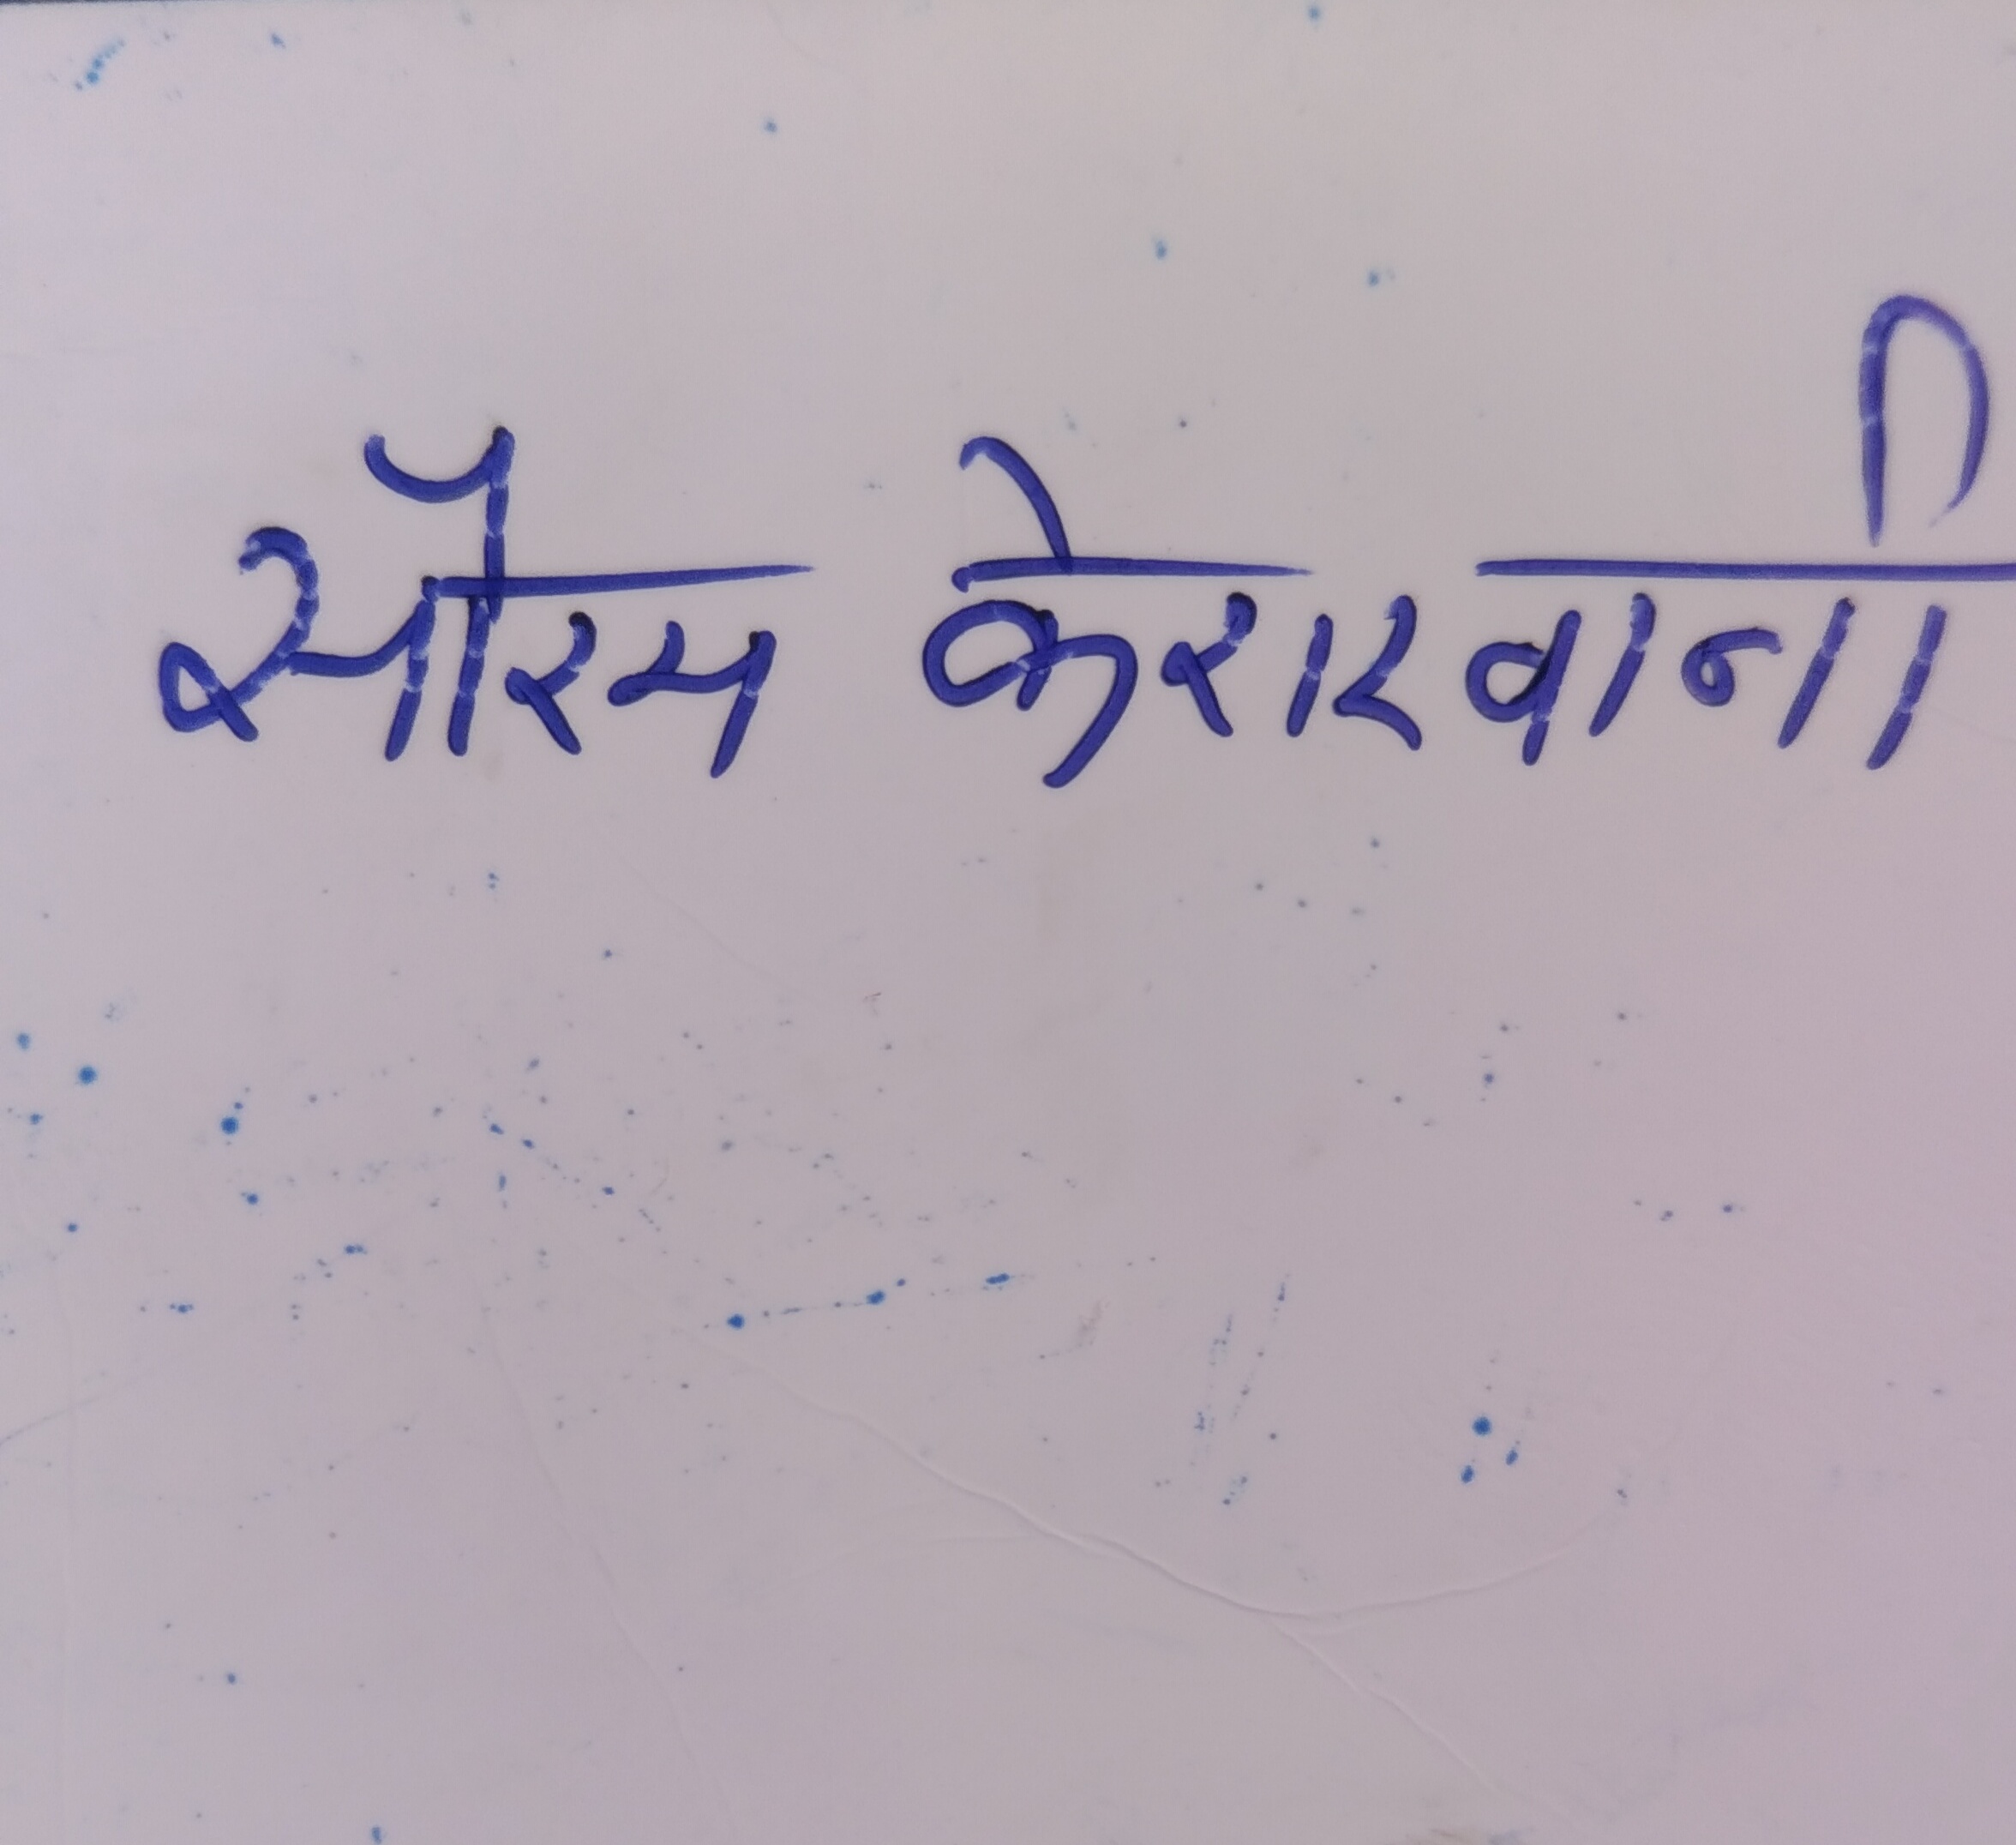 सौरभ केशरवानी